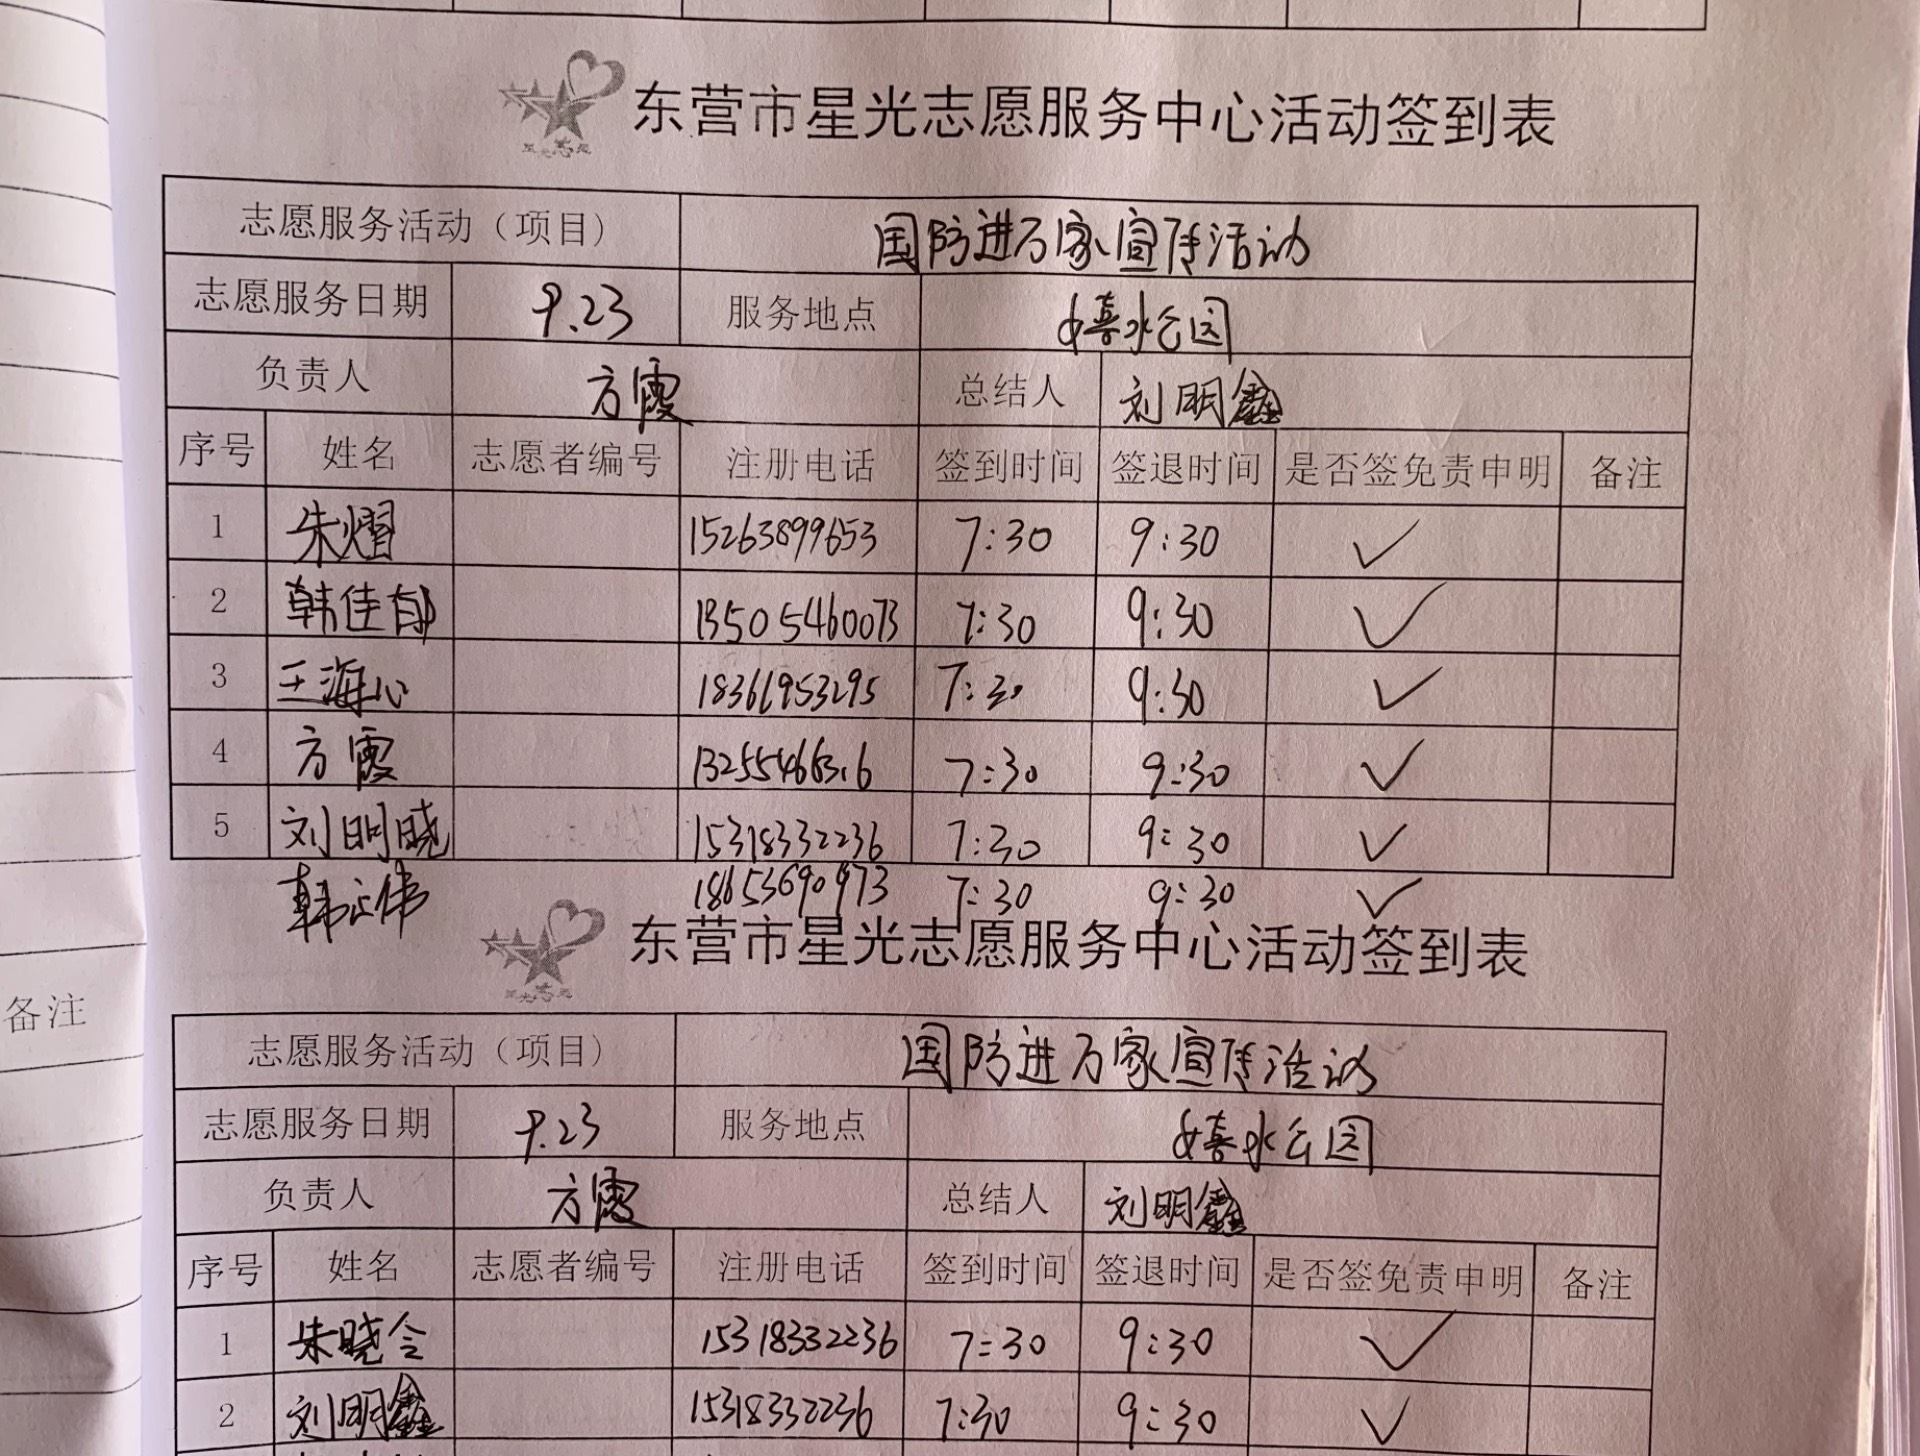 东营市星光志愿服务中心活动签到表
志愿服务活动（项目） 国防进万家宣传活动
志愿服务日期 9.23 服务地点 嬉水公园
负责人 方霞 总结人 刘明鑫
序号 姓名 志愿者编号 注册电话 签到时间 签退时间 是否签免责申明 备注
1 朱熠 15263899653 7:30 9:30 ✓
2 韩佳郁 13505460073 7:30 9:30 ✓
3 王海心 18361953295 7:30 9:30 ✓
4 方霞 7:30 9:30 ✓
5 刘明晓 15318332236 7:30 9:30 ✓
韩正伟 18653690973 7:30 9:30 ✓
东营市星光志愿服务中心活动签到表
志愿服务活动（项目） 国防进万家宣传活动
志愿服务日期 9.23 服务地点 嬉水公园
负责人 方霞 总结人 刘明鑫
序号 姓名 志愿者编号 注册电话 签到时间 签退时间 是否签免责申明 备注
1 朱晓令 15318332236 7:30 9:30 ✓
2 刘明鑫 15318332236 7:30 9:30 ✓
备注